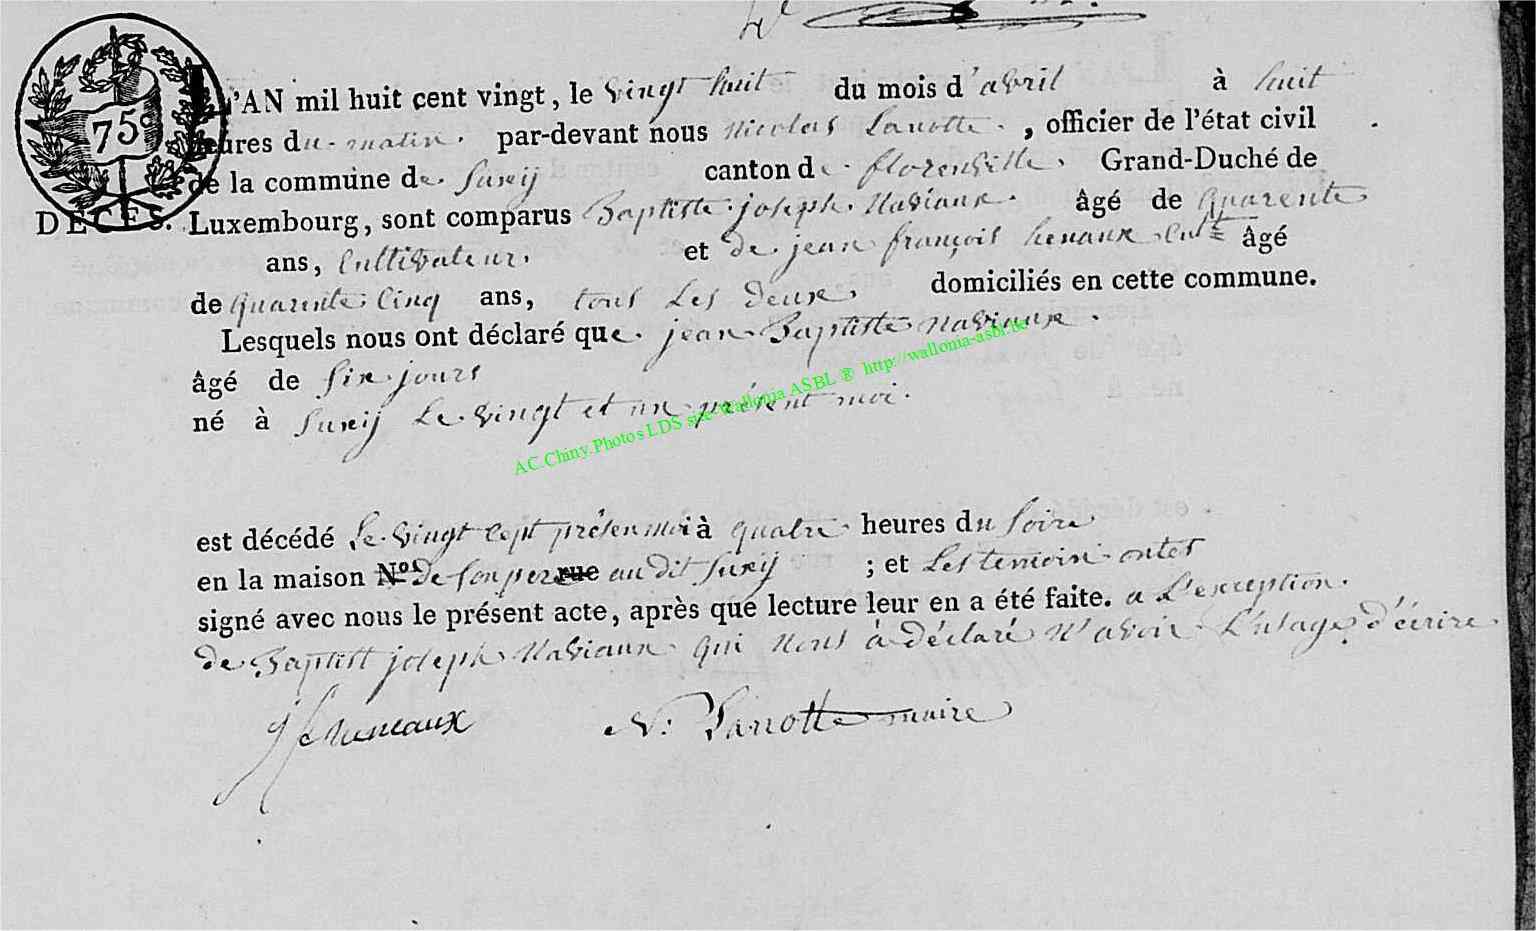 75c
L'AN mil huit cent vingt, le vingt huit du mois d'avril à huit
heures du matin. par-devant nous nicolas Lanotte. , officier de l'état civil
de la commune de Suxij canton de florenville. Grand-Duché de
DÉCÈS. Luxembourg, sont comparus Baptiste joseph Naviaux. âgé de quarente
ans, Cultivateur. et de jean françois henaux Cult âgé
de quarente Cinq ans, tous Les deux domiciliés en cette commune.
Lesquels nous ont déclaré que jean Baptiste naviaux.
âgé de six jours
né à Suxij Le vingt et un présent moi.
AC.Chiny.Photos LDS site Wallonia ASBL ® http://wallonia-asbl.be
est décédé Le vingt Cept présen moi à quatre heures du soire
en la maison Nº. de son per rue au dit Suxij ; et Les temoin ontet
signé avec nous le présent acte, après que lecture leur en a été faite. a L'exception.
de Baptist joseph Naviaux qui nous à déclaré N'avoir L'usage d'écrire
N: Lanotte maire